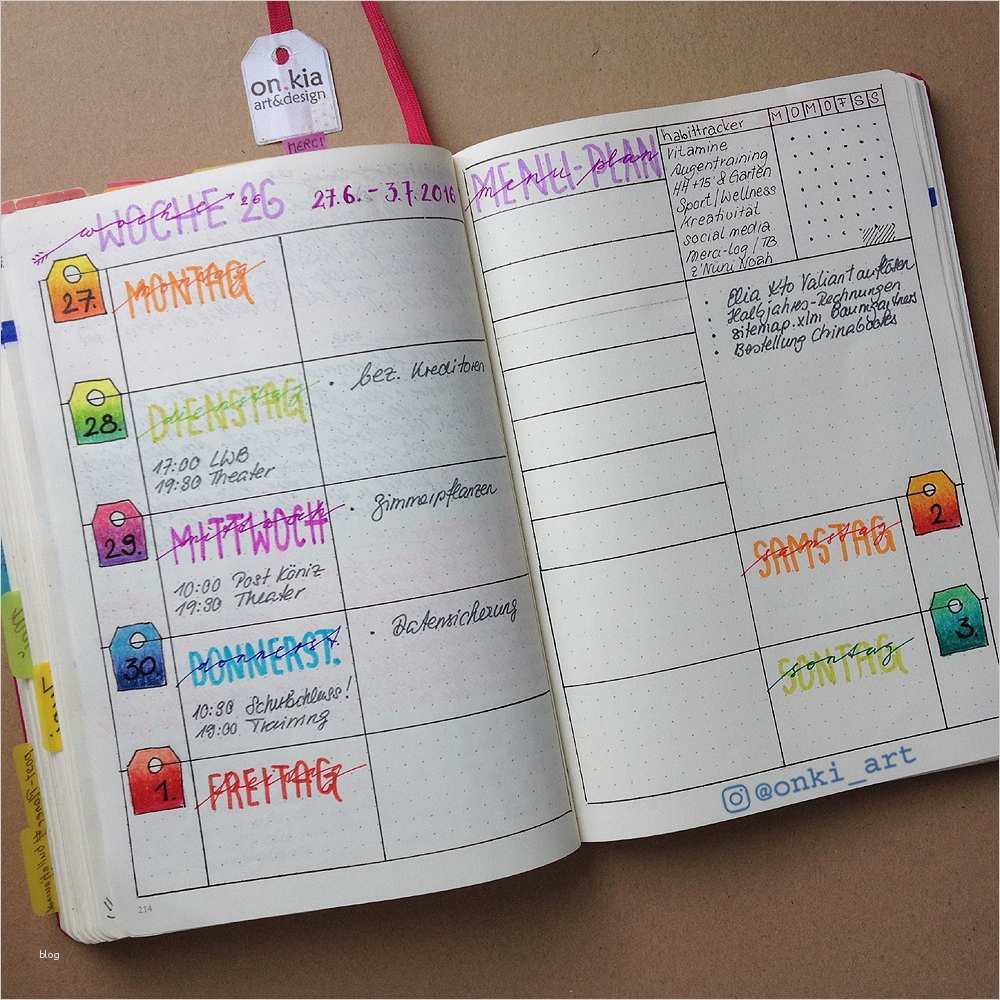 on.kia
art&design
MERCI
WOCHE 26
woche 26
27.6. - 3.7.2016
27.
MONTAG
montag
28.
DIENSTAG
dienstag
• bez. Kreditoren
17:00 LWB
19:30 Theater
29.
MITTWOCH
mittwoch
• Zimmerpflanzen
10:00 Post Köniz
19:30 Theater
30.
DONNERST.
donnerst.
• Datensicherung
10:30 Schulschluss!
19:00 Training
1.
FREITAG
freitag
214
MENU-PLAN
menu plan
habittracker
M D M D F S S
Vitamine
Augentraining
HH+15' & Garten
Sport/Wellness
Kreativität
social media
merci-log / TB
z'Nüni Noah
• Elia Kto Valiant auflösen
• Halbjahres-Rechnungen
• sitemap.xlm Baumgartners
• Bestellung Chinabooks
2.
SAMSTAG
samstag
3.
SONTAG
sontag
@onki_art
blog